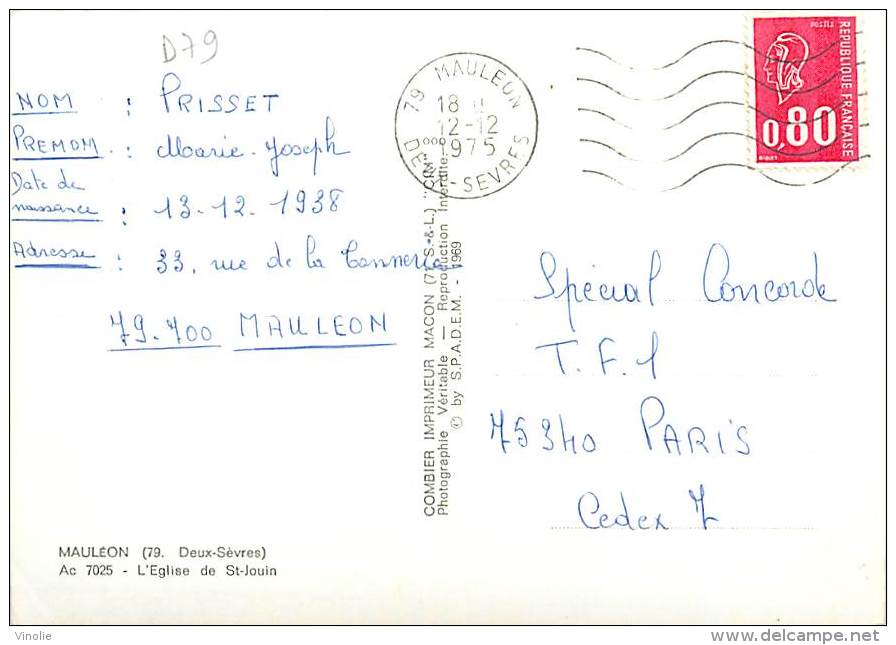 D79
NOM : PRISSET
PREMOM : Marie-Joseph
Date de
naissance : 13.12.1938
Adresse : 33, rue de la Tannerie
79.700 MAULEON
79 MAULEON
18
12-12
1975
DEUX-SEVRES
POSTES
REPUBLIQUE FRANÇAISE
0,80
Spécial Concorde
T.F.1
75340 PARIS
Cedex 7
COMBIER IMPRIMEUR MACON (71. S.-&-L.) "CIM"
Photographie Véritable — Reproduction Interdite
© by S.P.A.D.E.M. - 1969
MAULÉON (79. Deux-Sèvres)
Ac 7025 - L'Eglise de St-Jouin
Vinolie
delcampe.net